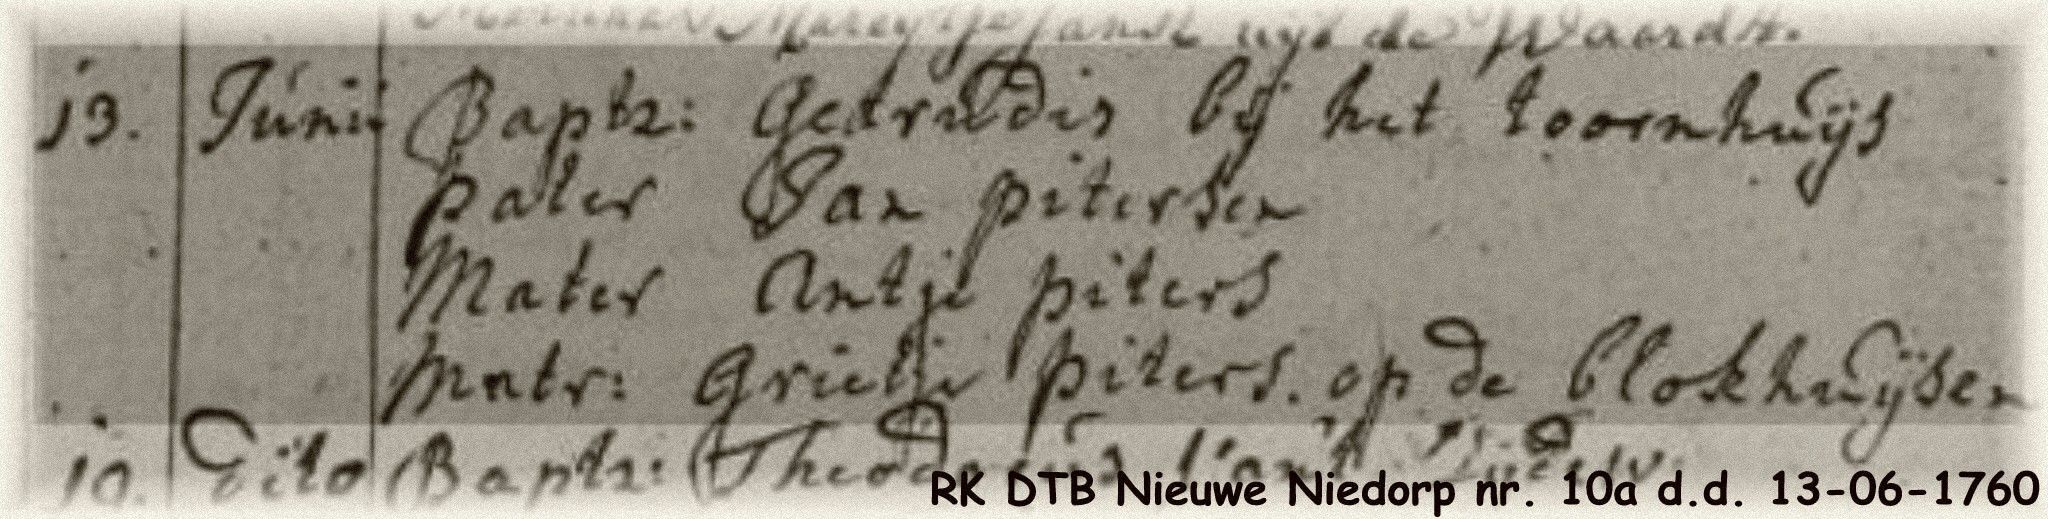 Mareytje Jans uijt de Waardt.
13. Junii Bapta: Getrudis bij het toornhuijs
pater Jan pitersen
Mater Antje piters
Matr: Grietje piters. op de blokhuijsen
19. Dito Bapta:
RK DTB Nieuwe Niedorp nr. 10a d.d. 13-06-1760